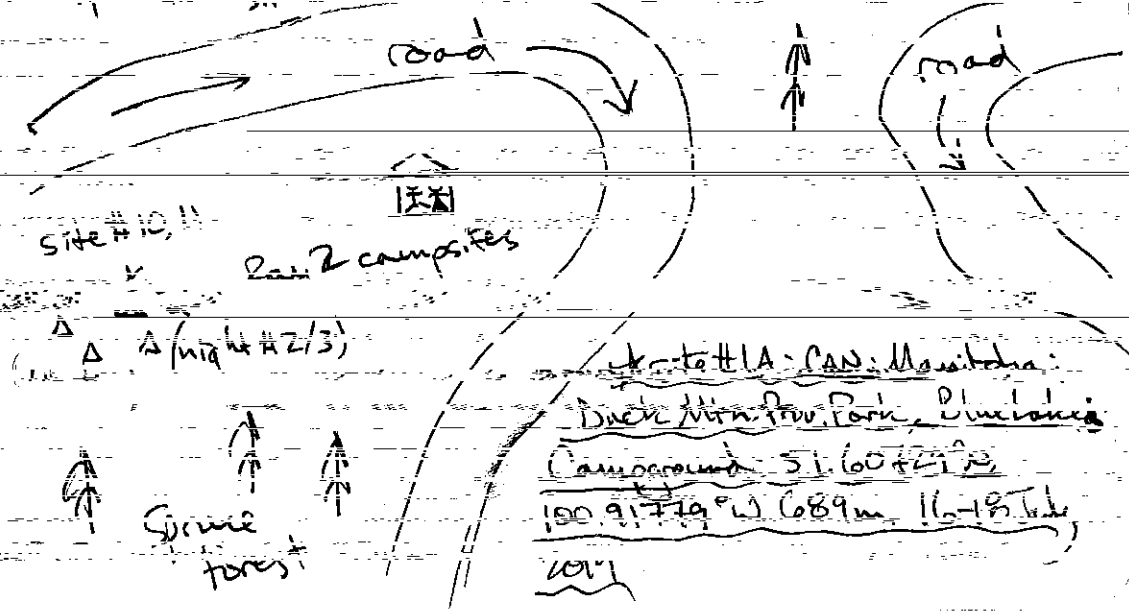 road
road
site #10, 11
2 campsites
(night #2/3)
#1A: CAN: Manitoba:
Duck Mtn. Prov. Park, Blue Lakes
Campground
100.91779°W) 689m, 16-18 July
Spruce
forest